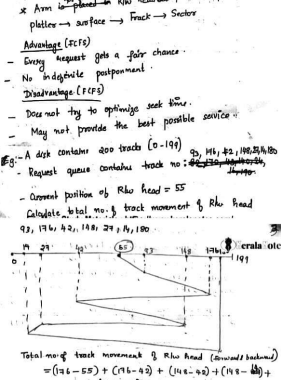 * Arm is placed in R/w
platter → surface → Track → Sector
Advantage (FCFS)
- Every request gets a fair chance.
- No indefinite postponment.
Disadvantage (FCFS)
- Does not try to optimize seek time.
- May not provide the best possible service.
Eg:- A disk contains 200 tracks (0-199)
- Request queue contains track no: 93, 176, 42, 148, 27, 14, 180
- Current position of R/w head = 55
Calculate total no. of track movement of R/w head
93, 176, 42, 148, 27, 14, 180
14 27 42 55 93 148 176
0 199
Total no. of track movement of R/w head (forward & backward)
= (176-55) + (176-42) + (148-42) + (148-